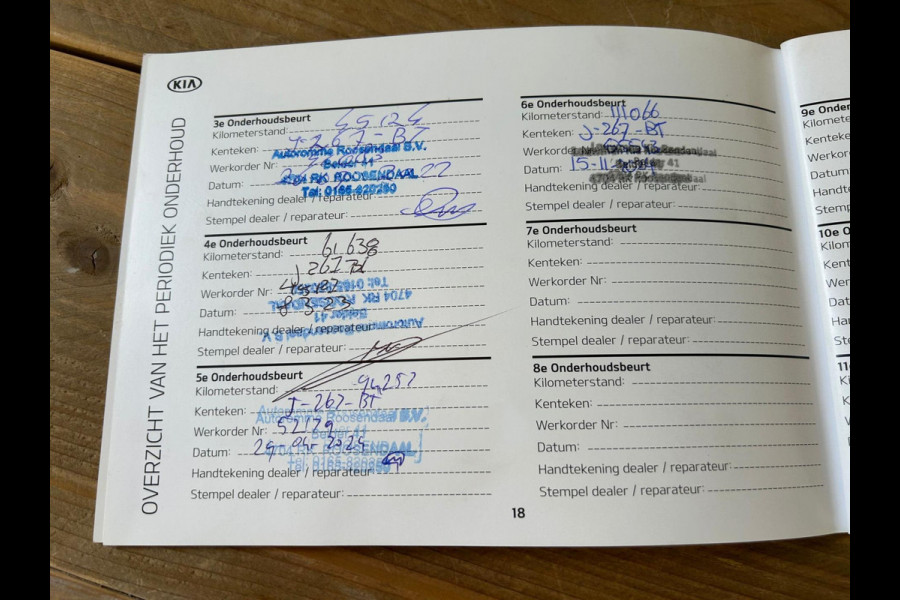 KIA
OVERZICHT VAN HET PERIODIEK ONDERHOUD
3e Onderhoudsbeurt
Kilometerstand:
Kenteken: J-267-BT
Autoromme Roosendaal B.V.
Werkorder Nr:
Belder 41
Datum: 22
4704 RK ROOSENDAAL
Tel: 0165-820250
Handtekening dealer / reparateur:
Stempel dealer / reparateur:
4e Onderhoudsbeurt
Kilometerstand: 61.638
Kenteken: J 267 Bt
Werkorder Nr:
Datum: 8 3 23
4704 RK ROOSENDAAL
Belder 41
Handtekening dealer / reparateur:
Autoromme Roosendaal B.V.
Stempel dealer / reparateur:
5e Onderhoudsbeurt
Kilometerstand: 94257
Kenteken: J-267-BT
Autoromme Roosendaal B.V.
Werkorder Nr: 52129
Belder 41
Datum:
4704 RK ROOSENDAAL
Handtekening dealer / reparateur:
Stempel dealer / reparateur:
6e Onderhoudsbeurt
Kilometerstand: 111066
Kenteken: J-267-BT
Werkorder Nr:
Datum: 15-11
Handtekening dealer / reparateur:
Stempel dealer / reparateur:
7e Onderhoudsbeurt
Kilometerstand:
Kenteken:
Werkorder Nr:
Datum:
Handtekening dealer / reparateur:
Stempel dealer / reparateur:
8e Onderhoudsbeurt
Kilometerstand:
Kenteken:
Werkorder Nr:
Datum:
Handtekening dealer / reparateur:
Stempel dealer / reparateur:
18
9e Onder
Kilomete
Kenteke
Werkor
Datum
Handt
Stemp
10e O
Kilom
Kent
Werk
Dat
Har
Ste
11